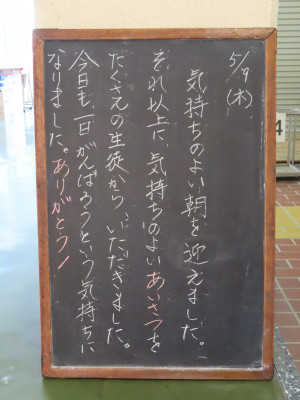 5/9(木)
気持ちのよい朝を迎えました。
それ以上に、気持ちのよいあいさつを
たくさんの生徒から、いただきました。
今日も、一日がんばろうという気持ちに
なりました。ありがとう!
4